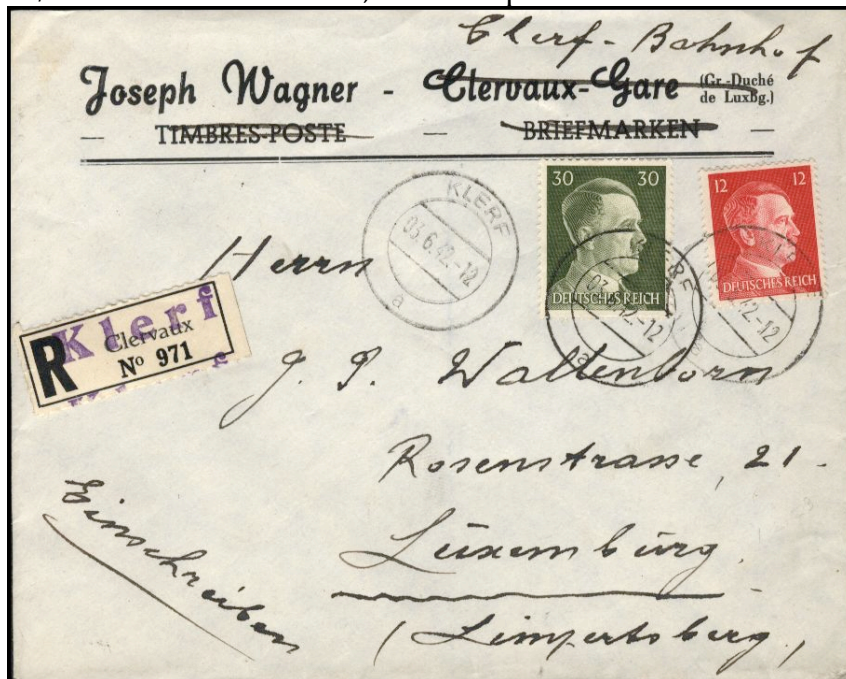 Clerf-Bahnhof
Joseph Wagner - Clervaux-Gare (Gr.-Duché de Luxbg.)
— TIMBRES-POSTE — BRIEFMARKEN —
30 30
DEUTSCHES REICH
12 12
DEUTSCHES REICH
KLERF
03.6.42.-12
a
KLERF
03.6.42.-12
a
Herrn
Klerf
Clervaux
R No 971
J. P. Waltenborn
Rosenstrasse, 21-
Luxemburg.
(Limpertsberg,
Einschreiben